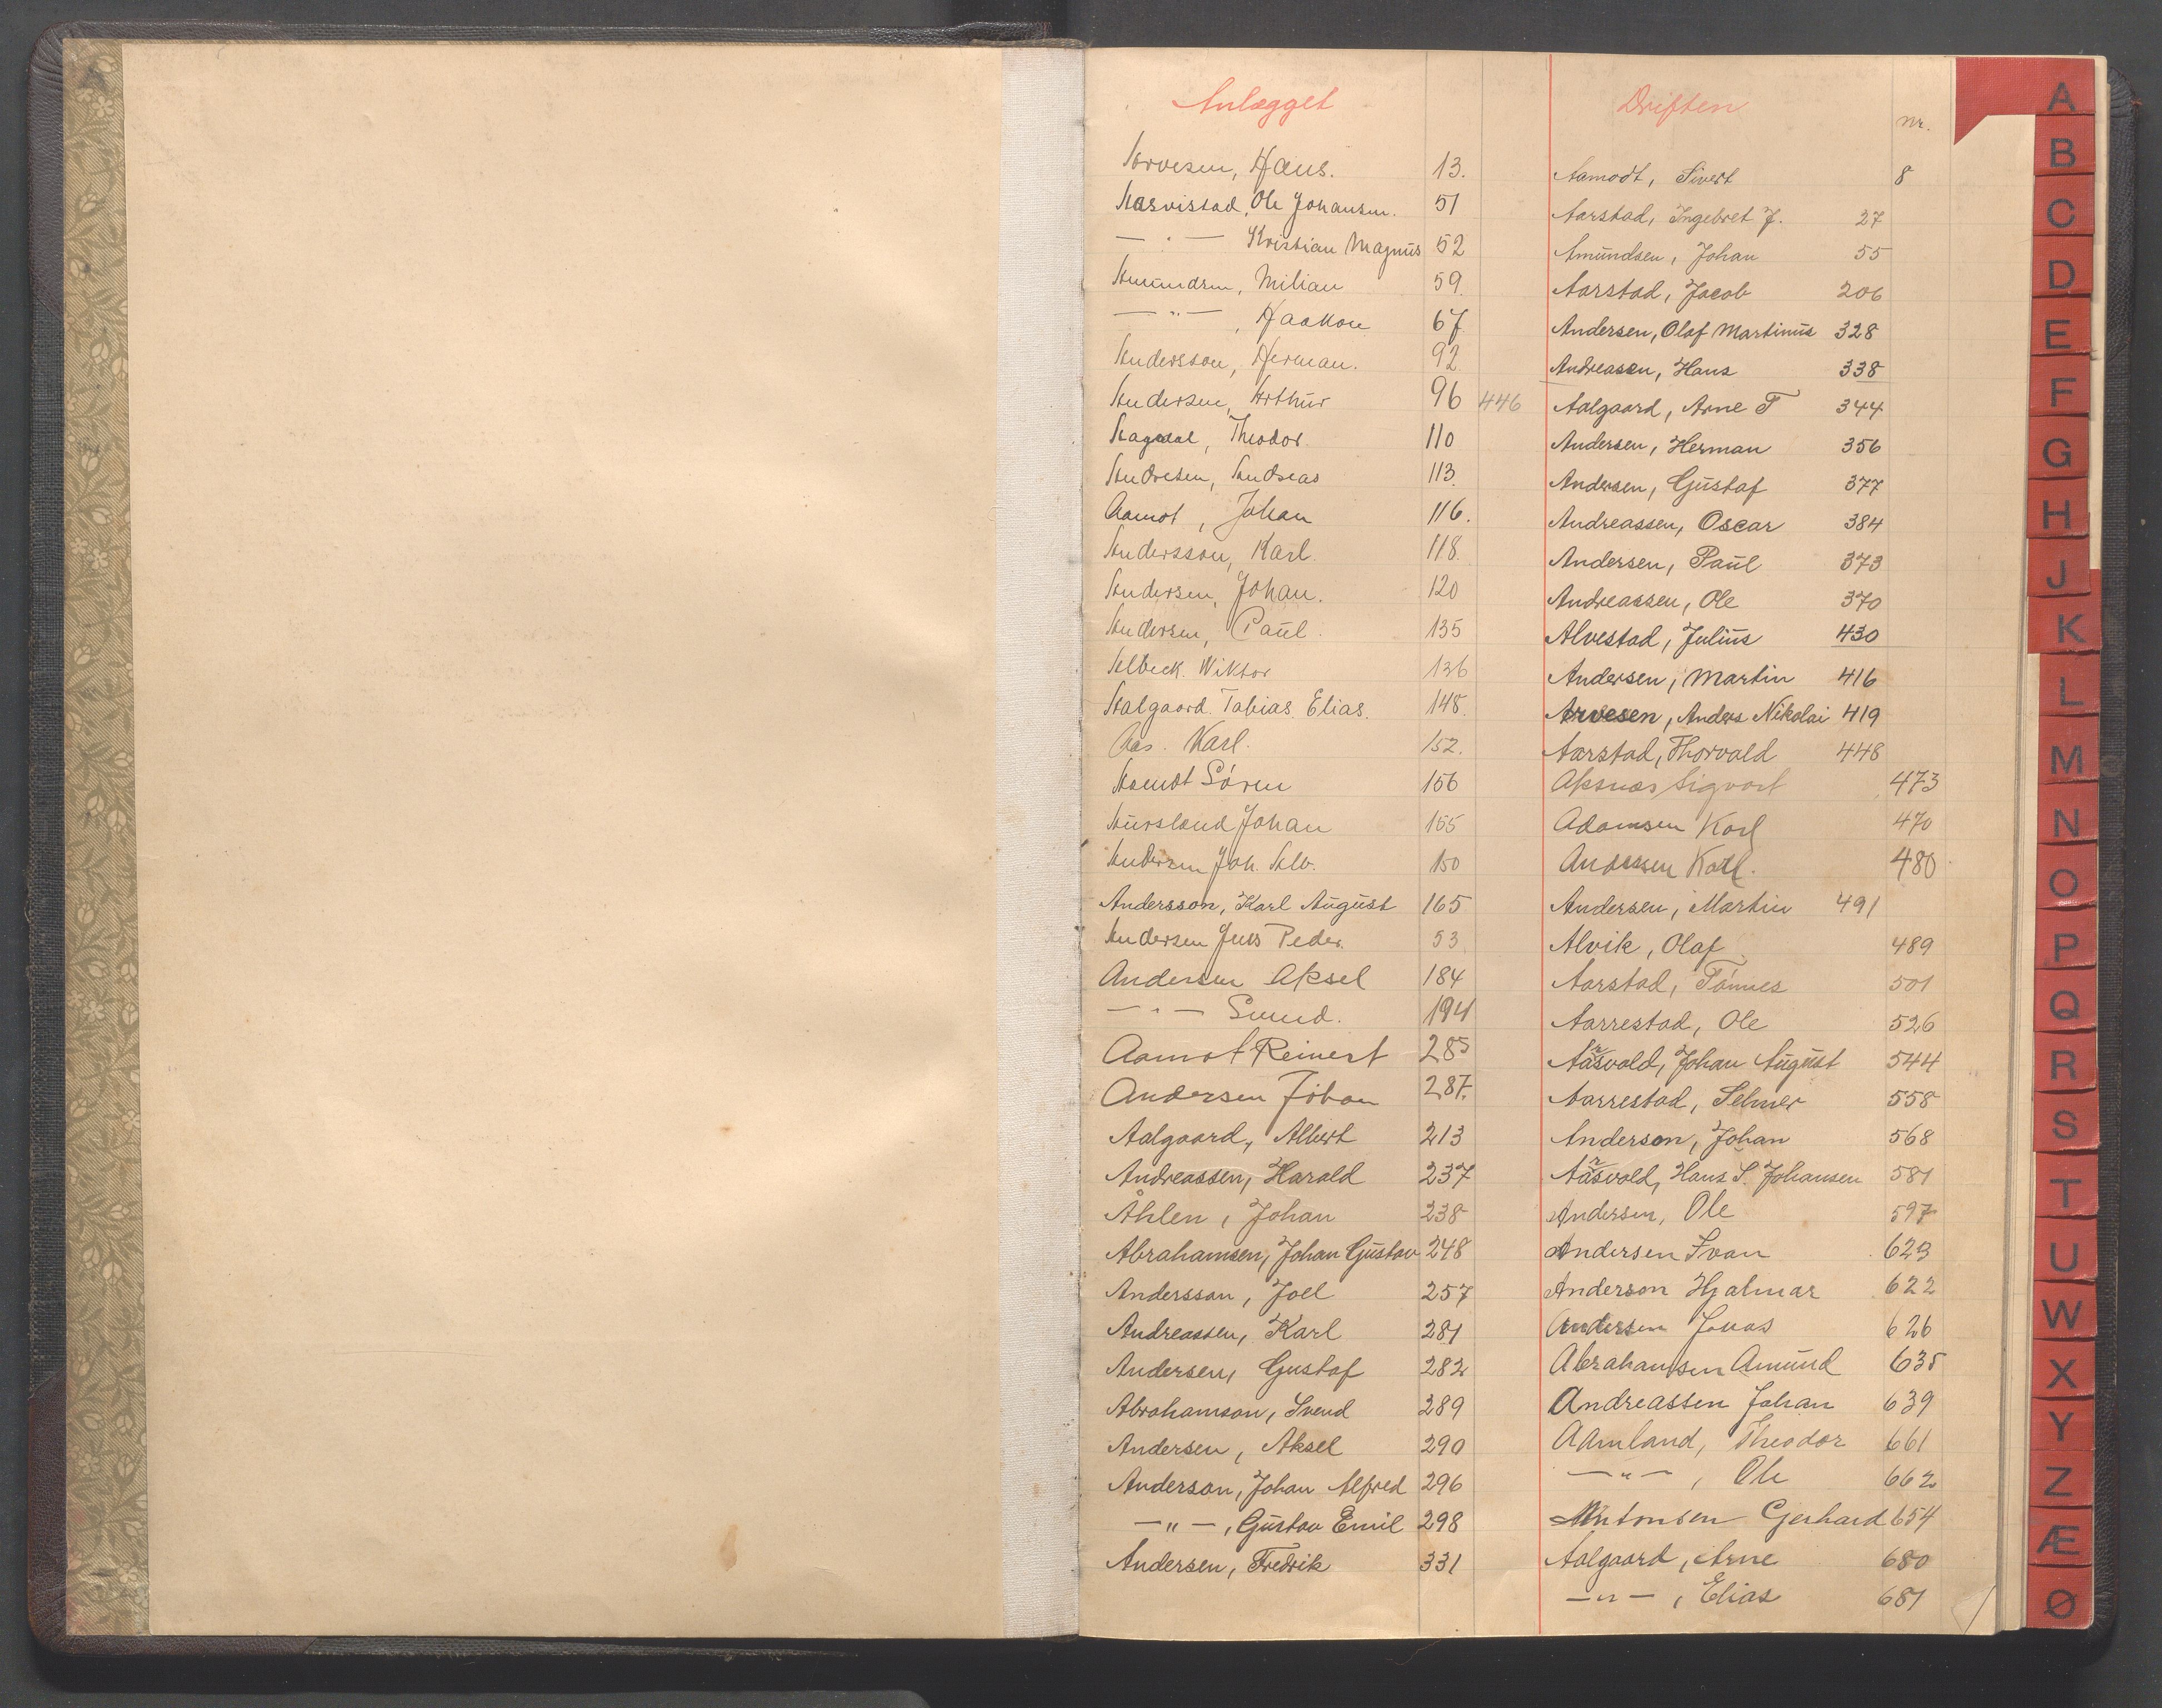 Anlægget
Arvesen, Hans. 13.
Aasvistad, Ole Johansen. 51
— " — Kristian Magnus 52
Amundsen, Milian 59.
— " — , Haakon 67
Andersson, Herman. 92.
Andersen, Arthur 96 446
Aagedal, Theodor 110
Andresen, Andreas 113.
Aamot, Johan 116.
Andersson, Karl 118.
Andersen, Johan. 120
Andersen, Paul. 135
Albeck. Wiktor 136
Aalgaard. Tobias Elias. 148.
Aas. Karl. 152.
Søren 156
Johan 155
Andersen Joh. Alb. 150
Andersson, Karl August 165
Andersen Jens Peder. 53
Andersen Aksel 184
— " — 194
Aamot Reinert 285
Andersen Johan 287.
Aalgaard, Albert 213
Andreassen, Harald 237
Åhlen, Johan 238
Abrahamsen, Johan Gustav 248
Andersson, Joel 257
Andreassen, Karl 281
Andersen, Gustaf 282
Abrahamson, Svend 289
Andersen, Aksel 290
Anderson, Johan Alfred 296
— " — , Gustav Emil 298
Andersen, Fredrik 331
Driften nr.
Aamodt, Sivert 8
Aarstad, Ingebret J. 27
Amundsen, Johan 55
Aarstad, Jacob 206
Andersen, Olaf Martinus 328
Andreasen, Hans 338
Aalgaard, Arne T 344
Andersen, Herman 356
Andersen, Gustaf 377
Andreassen, Oscar 384
Andersen, Paul 373
Andreassen, Ole 370
Alvestad, Julius 430
Andersen, Martin 416
Arvesen, Anders Nikolai 419
Aarstad, Thorvald 448
Aksnæs Sigvart 473
Adamsen Karl 470
Anderssen Karl. 480
Andersen, Martin 491
Alvik, Olaf 489
Aarstad, Tønnes 501
Aarrestad, Ole 526
Aarsvold, Johan August 544
Aarrestad, Selmer 558
Anderson, Johan 568
Aarsvold, Hans S. Johansen 581
Andersen, Ole 597
Andersen Ivan 623
Anderson Hjalmar 622
Andersen Jonas 626
Abrahamsen Amund 635
Andreassen Johan 639
Aamland, Theodor 661
— " — , Ole 662
Antonsen Gerhard 654
Aalgaard, Arne 680
— " — , Elias 681
A
B
C
D
E
F
G
H
J
K
L
M
N
O
P
Q
R
S
T
U
W
X
Y
Z
Æ
Ø